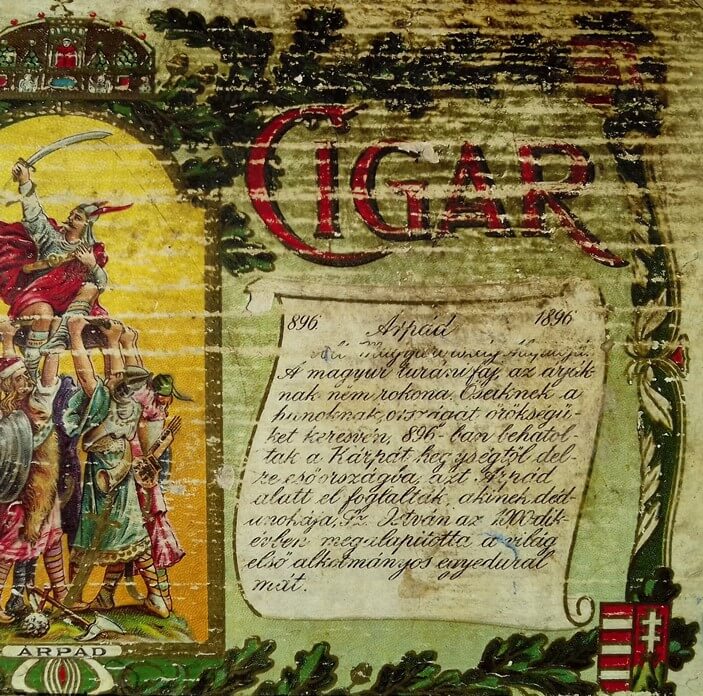 CIGAR
896 Árpád 1896
A magyar turáni faj, az árják-
nak nem rokona. Őseiknek a
hunoknak, országát örökségü-
ket keresvén, 896-ban behatol-
tak a Kárpát hegységtől dél-
re eső országba, azt Árpád
alatt el foglalták, akinek déd-
unokája, Sz. István az 1000-dik-
évben megalapította a világ
első alkotmányos egyedural
mát.
ÁRPÁD